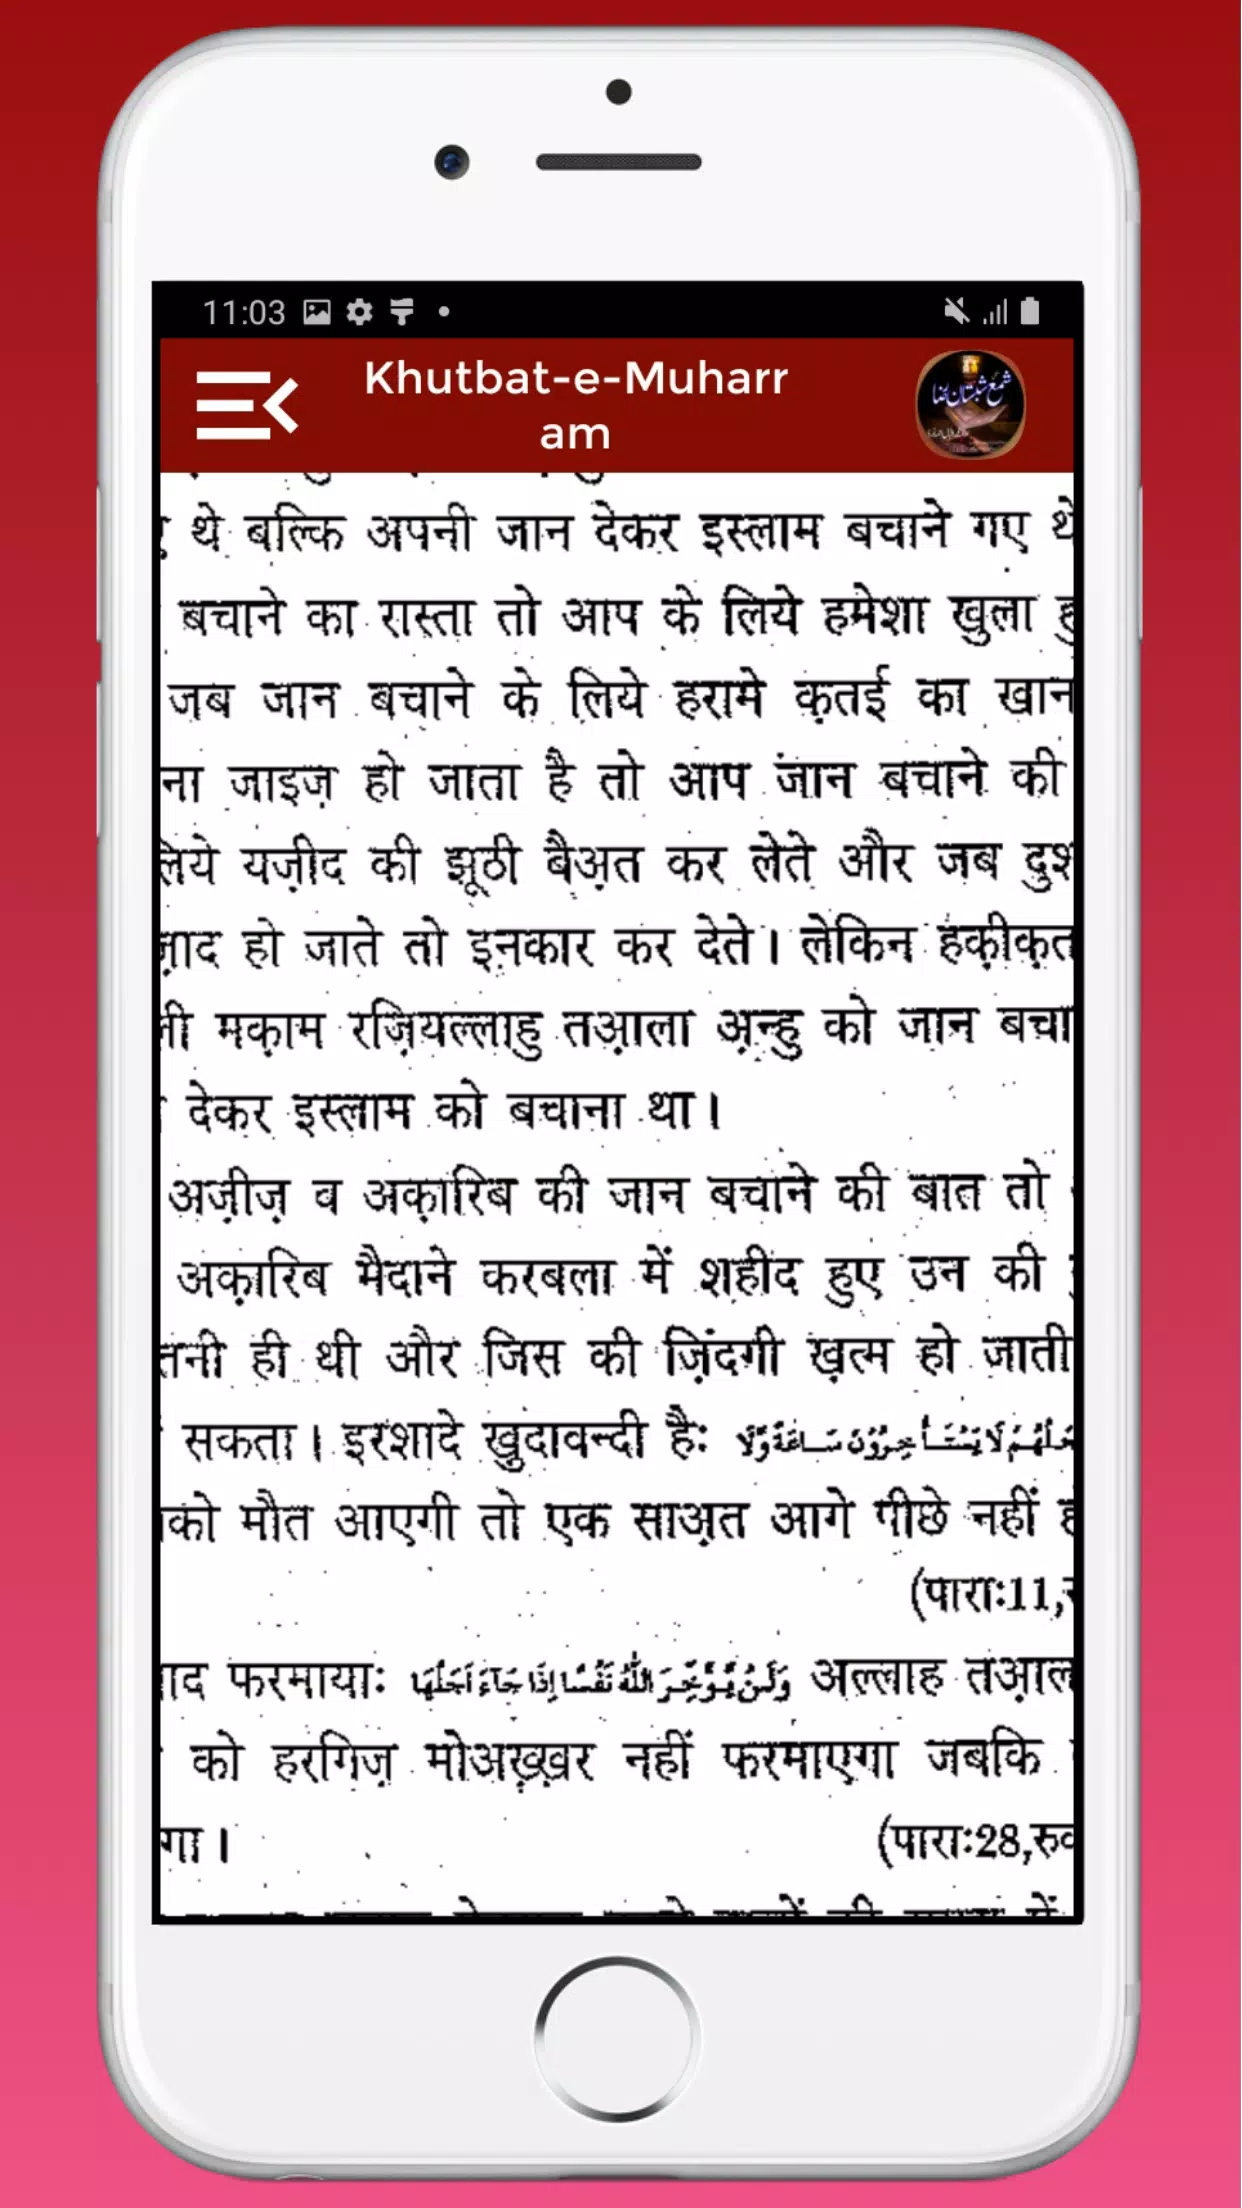 11:03
Khutbat-e-Muharr
am
थे बल्कि अपनी जान देकर इस्लाम बचाने गए थे
बचाने का रास्ता तो आप के लिये हमेशा खुला
जब जान बचाने के लिये हरामे क़तई का खान
ना जाइज़ हो जाता है तो आप जान बचाने की
लिये यज़ीद की झूठी बैअ़त कर लेते और जब
हो जाते तो इनकार कर देते। लेकिन हक़ीक़त
मक़ाम रज़ियल्लाहु तआ़ला अ़न्हु को जान बचा
देकर इस्लाम को बचाना था।
अज़ीज़ व अक़ारिब की जान बचाने की बात तो
अक़ारिब मैदाने करबला में शहीद हुए उन की
तनी ही थी और जिस की ज़िंदगी ख़त्म हो जाती
सकता। इरशादे खुदावन्दी है:
को मौत आएगी तो एक साअ़त आगे पीछे नहीं
(पारा:11,
फरमाया: وَلَنْ يُؤَخِّرَ اللَّهُ نَفْسًا إِذَا جَاءَ أَجَلُهَا अल्लाह तआ़ल
को हरगिज़ मोअख़्ख़र नहीं फरमाएगा जबकि
गा।
(पारा:28,